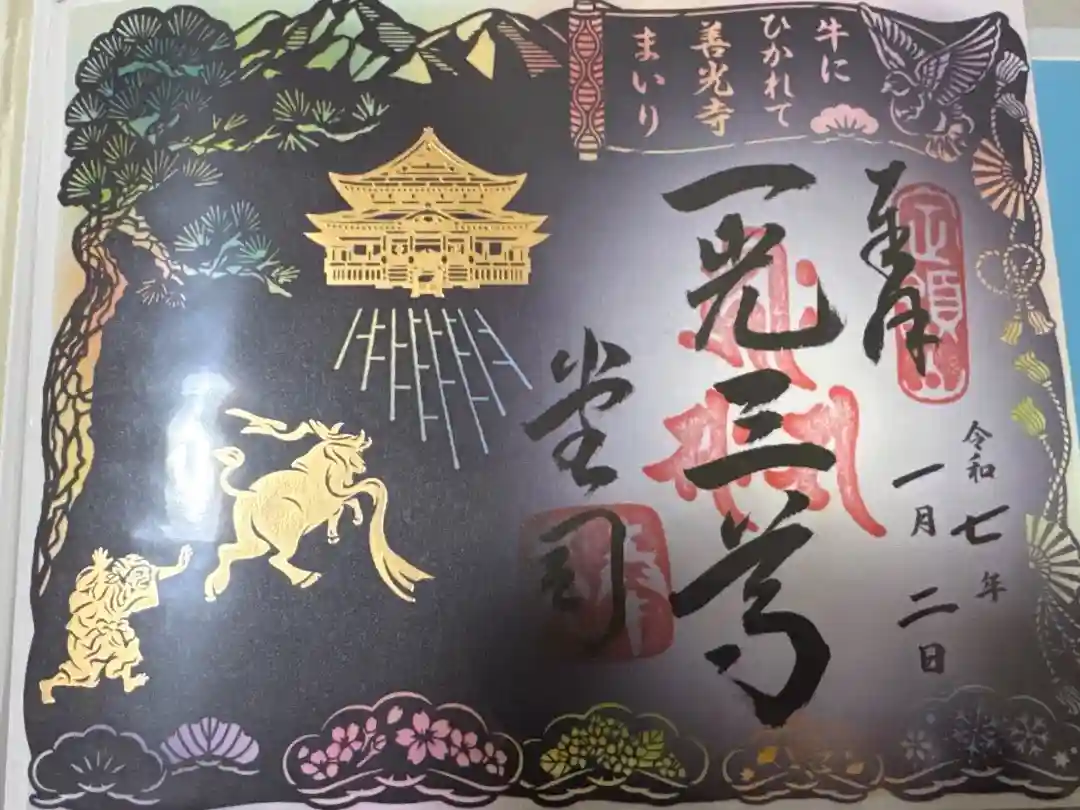 牛に
ひかれて
善光寺
まいり
奉拝
令和七年
一月二日
一光三尊
堂司